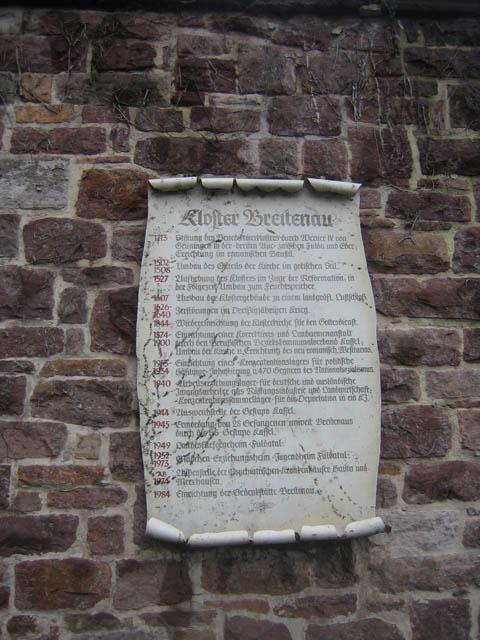 Kloster Breitenau
1113 Stiftung des Benediktinerklosters durch Werner IV. von
Grüningen in der breiten Aue zwischen Fulda und Eder.
Errichtung im romanischen Baustil.
1502
1508 Umbau des Ostteils der Kirche im gotischen Stil.
1527 Aufhebung des Klosters im Zuge der Reformation, in
der Folgezeit Umbau zum Fruchtspeicher.
1607 Ausbau der Klostergebäude zu einem landgräfl. Lustschloß.
1626
1640 Zerstörungen im Dreißigjährigen Krieg.
1844 Wiedereinrichtung der Klosterkirche für den Gottesdienst.
1874 Einrichtung einer Korrektions- und Landarmenanstalt
1900 durch den Preußischen Bezirkskommunalverband Kassel.
Umbau der Kirche u. Errichtung des neu romanisch. Westturms.
1933 Einrichtung eines Konzentrationslagers für politische
1934 Gefangene. Inhaftierung 470 Gegnern des Nationalsozialismus.
1940 Arbeitserziehungslager für deutsche und ausländische
Zwangsarbeiter aus Rüstungsindustrie und Landwirtschaft.
Konzentrationssammellager für die Deportation in ein KZ.
1944 Ausweichstelle der Gestapo Kassel.
1945 Ermordung von 28 Gefangenen unweit Breitenaus
durch die SS Gestapo Kassel.
1949 Landesfürsorgeheim Fuldatal.
1952
1973 Mädchen Erziehungsheim Jugendheim Fuldatal.
AB
1974 Außenstelle der Psychiatrischen Krankenhäuser Haina und
Merxhausen.
1984 Einrichtung der Gedenkstätte Breitenau.